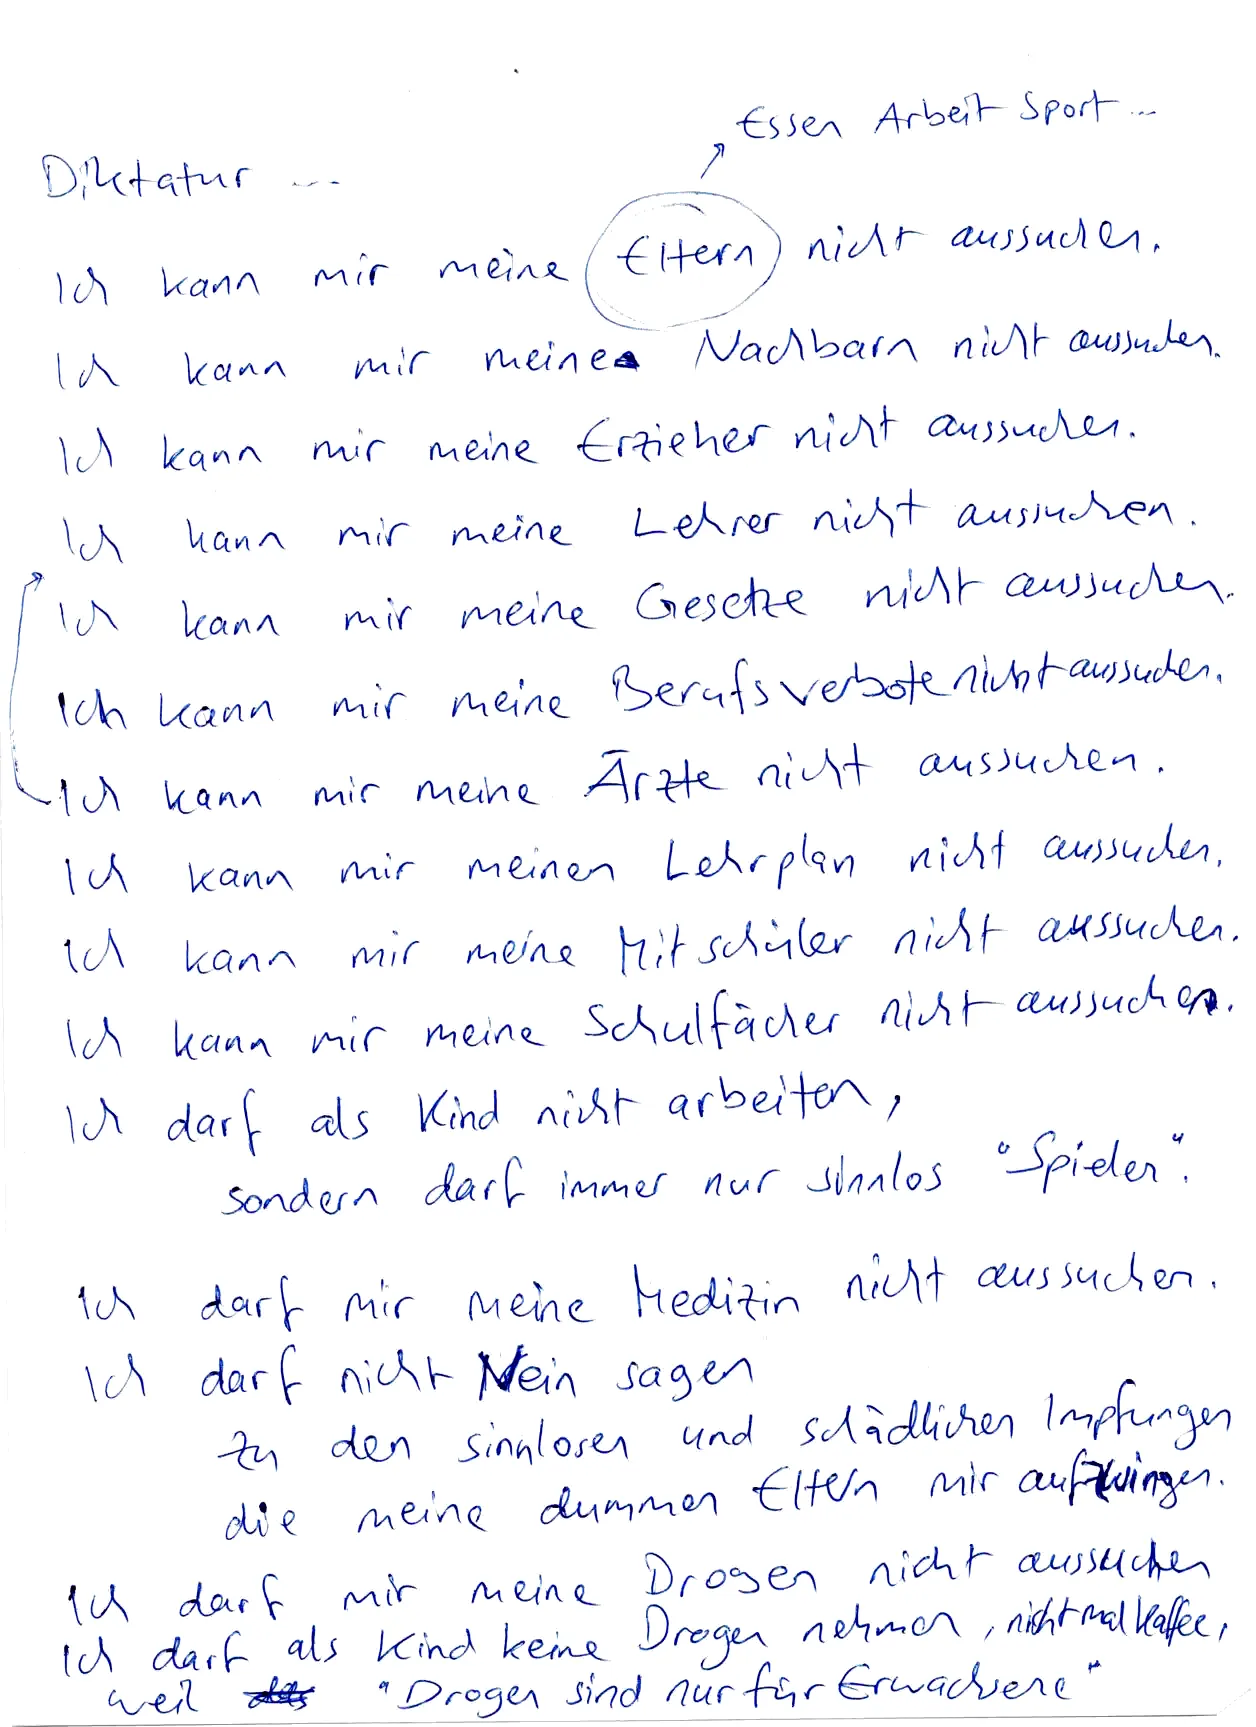 Essen Arbeit Sport ...
Diktatur ...
Ich kann mir meine Eltern nicht aussuchen.
Ich kann mir meine Nachbarn nicht aussuchen.
Ich kann mir meine Erzieher nicht aussuchen.
Ich kann mir meine Lehrer nicht aussuchen.
Ich kann mir meine Gesetze nicht aussuchen.
Ich kann mir meine Berufsverbote nicht aussuchen.
Ich kann mir meine Ärzte nicht aussuchen.
Ich kann mir meinen Lehrplan nicht aussuchen.
Ich kann mir meine Mitschüler nicht aussuchen.
Ich kann mir meine Schulfächer nicht aussuchen.
Ich darf als Kind nicht arbeiten,
sondern darf immer nur sinnlos "Spielen".
Ich darf mir meine Medizin nicht aussuchen.
Ich darf nicht Nein sagen
zu den sinnlosen und schädlichen Impfungen
die meine dummen Eltern mir aufzwingen.
Ich darf mir meine Drogen nicht aussuchen
Ich darf als Kind keine Drogen nehmen, nicht mal Kaffee,
weil "Drogen sind nur für Erwachsene"